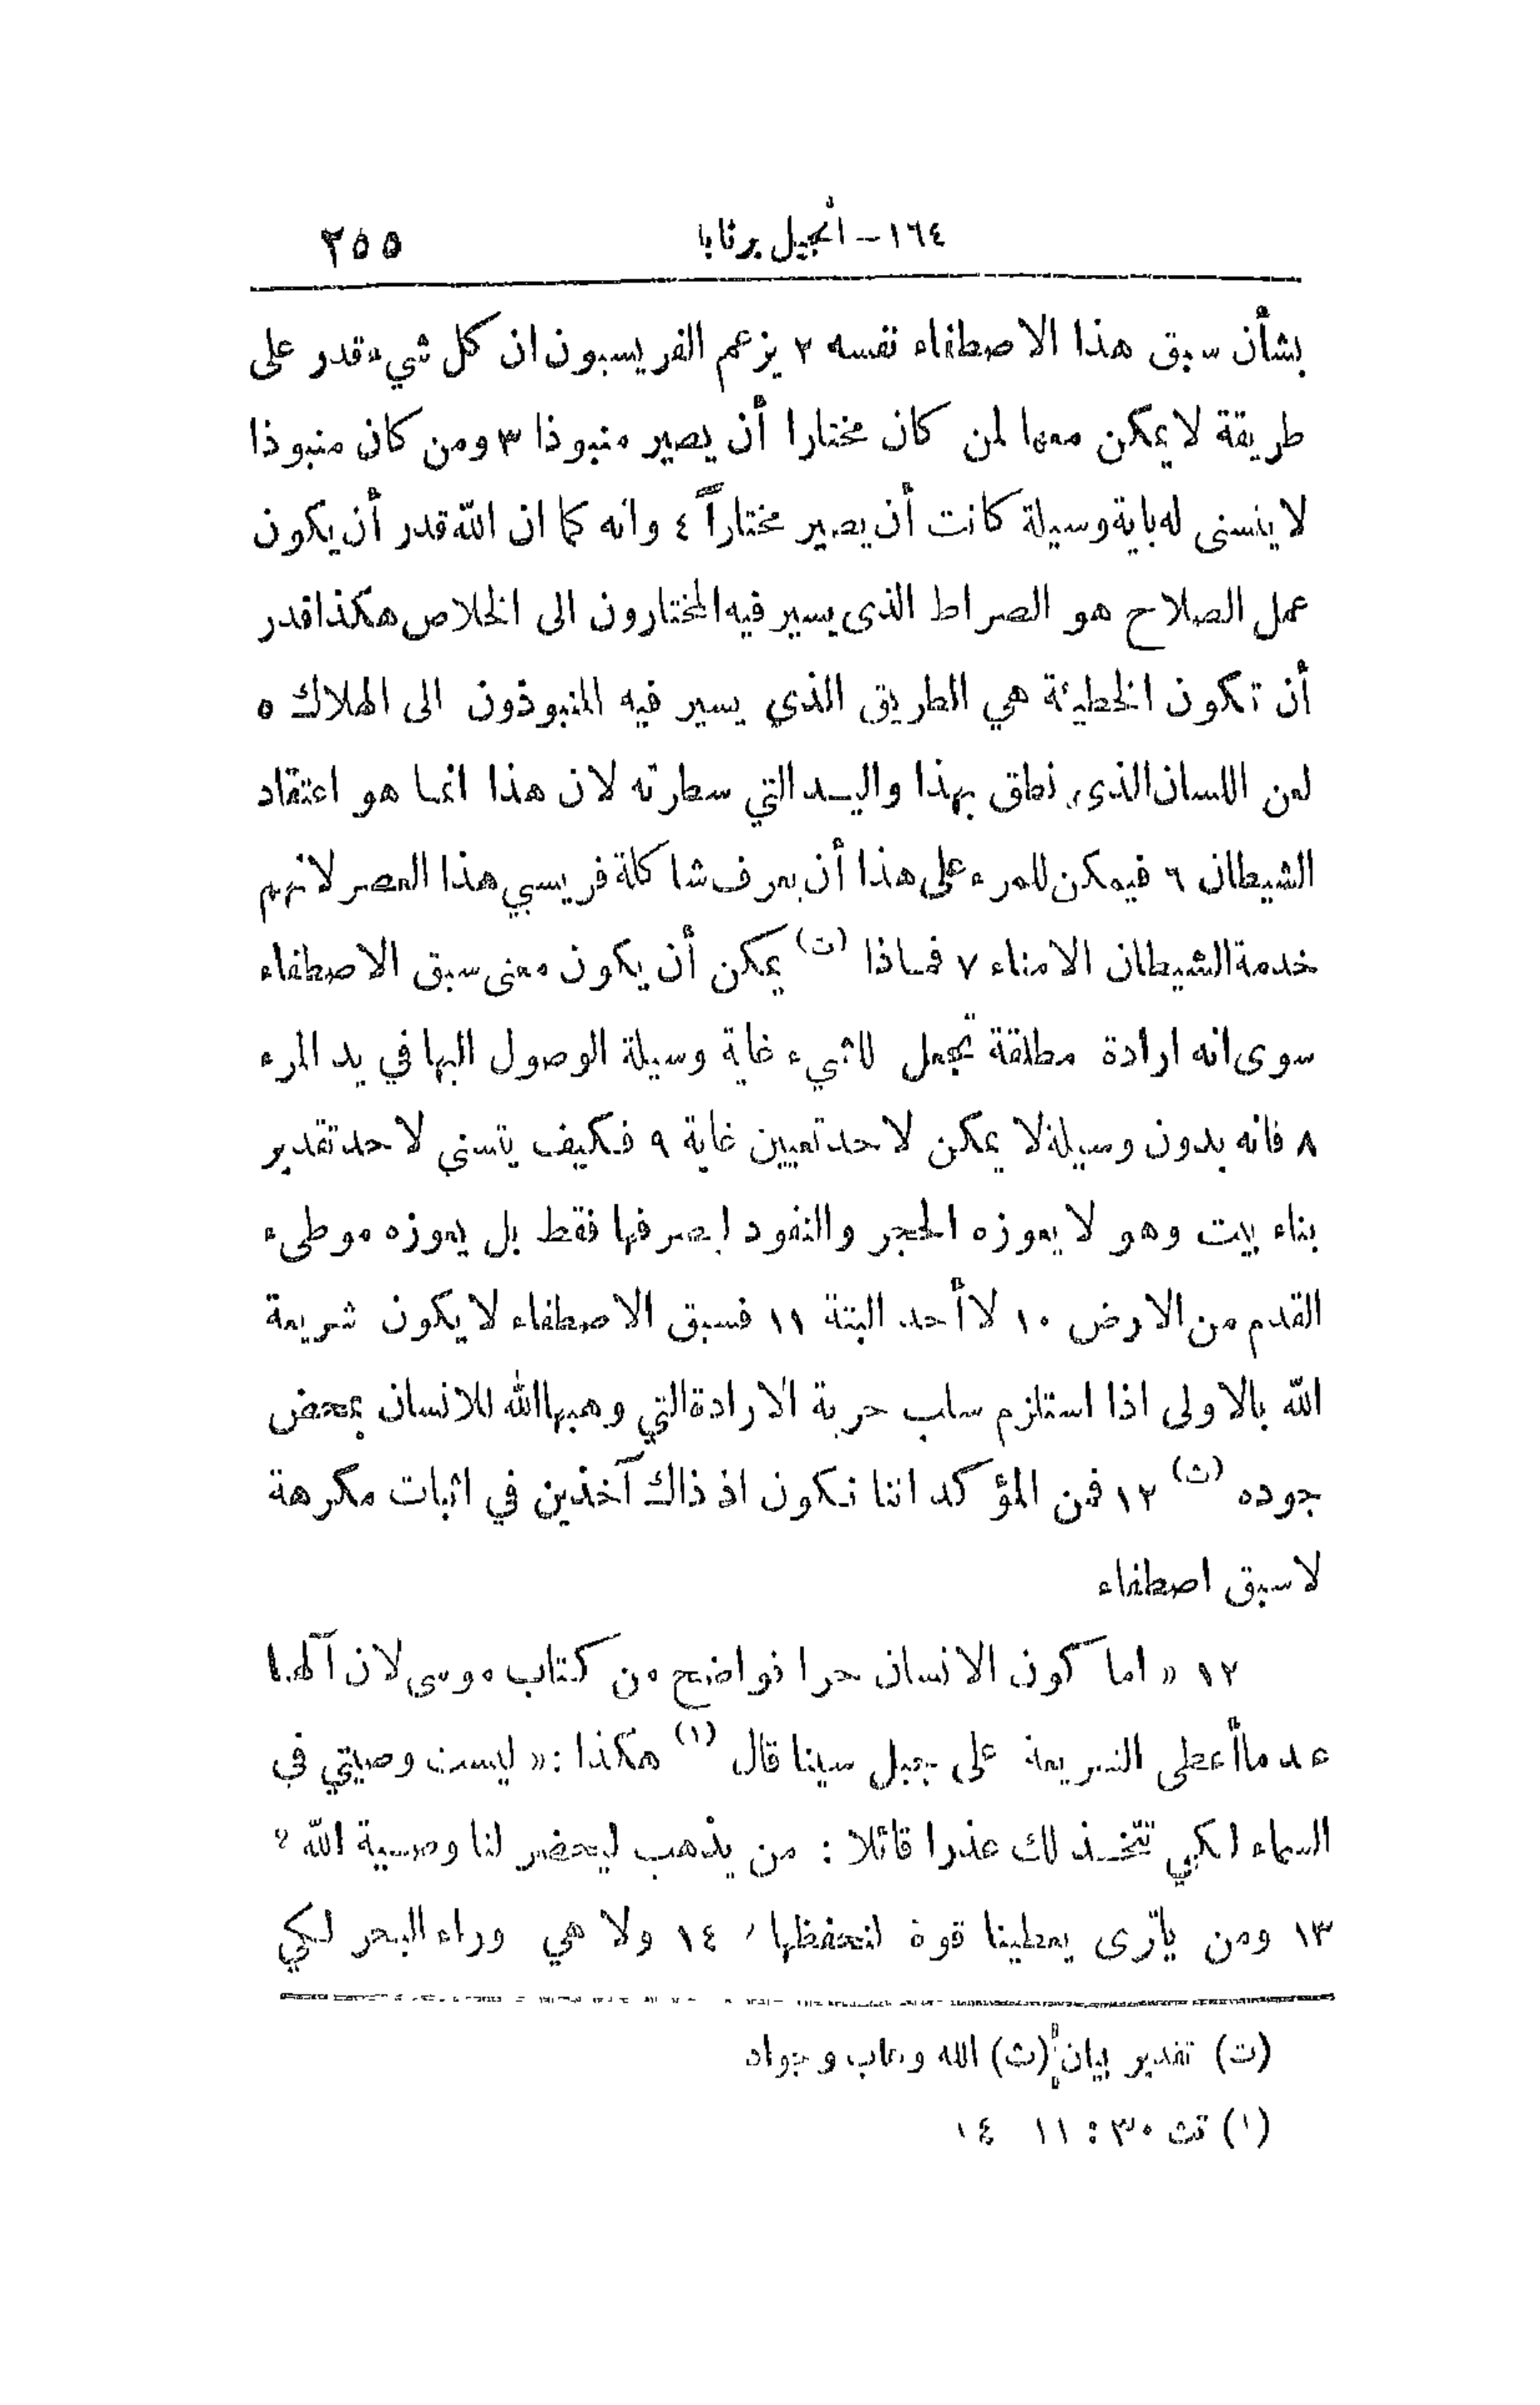 ١٦٤ — انجيل برنابا ٢٥٥
بشأن سبق هذا الاصطفاء نفسه ٢ يزعم الفريسيون ان كل شيء قدر على
طريقة لا يمكن معها لمن كان مختارا أن يصير منبوذا ٣ ومن كان منبوذا
لا يتسنى له باية وسيلة كانت أن يصير مختاراً ٤ وانه كما ان الله قدر أن يكون
عمل الصلاح هو الصراط الذى يسير فيه المختارون الى الخلاص هكذا قدر
أن تكون الخطيئة هي الطريق الذي يسير فيه المنبوذون الى الهلاك ٥
لعن اللسان الذى نطق بهذا واليد التي سطرته لان هذا انما هو اعتقاد
الشيطان ٦ فيمكن للمرء على هذا أن يعرف شاكلة فريسيي هذا العصر لانهم
خدمة الشيطان الامناء ٧ فماذا (ت) يمكن أن يكون معنى سبق الاصطفاء
سوى انه ارادة مطلقة تجعل للشيء غاية وسيلة الوصول اليها في يد المرء
٨ فانه بدون وسيلة لا يمكن لاحد تعيين غاية ٩ فكيف يتسنى لاحد تقدير
بناء بيت وهو لا يعوزه الحجر والنقود ليصرفها فقط بل يعوزه موطىء
القدم من الارض ١٠ لا أحد البتة ١١ فسبق الاصطفاء لا يكون شريعة
الله بالاولى اذا استلزم سلب حرية الارادة التي وهبها الله للانسان بمحض
جوده (ث) ١٢ فمن المؤكد اننا نكون اذ ذاك آخذين في اثبات مكرهة
لا سبق اصطفاء
١٢ « اما كون الانسان حرا فواضح من كتاب موسى لان آلهنا
عندما أعطى الشريعة على جبل سينا قال (١) هكذا : « ليست وصيتي في
السماء لكي تتخذ لك عذرا قائلا : من يذهب ليحضر لنا وصية الله ؟
١٣ ومن يا ترى يعطينا قوة لنحفظها ، ١٤ ولا هي وراء البحر لكي
(ت) تقدير بيان (ث) الله وهاب وجواد
(١) تث ٣٠ : ١١ ١٤